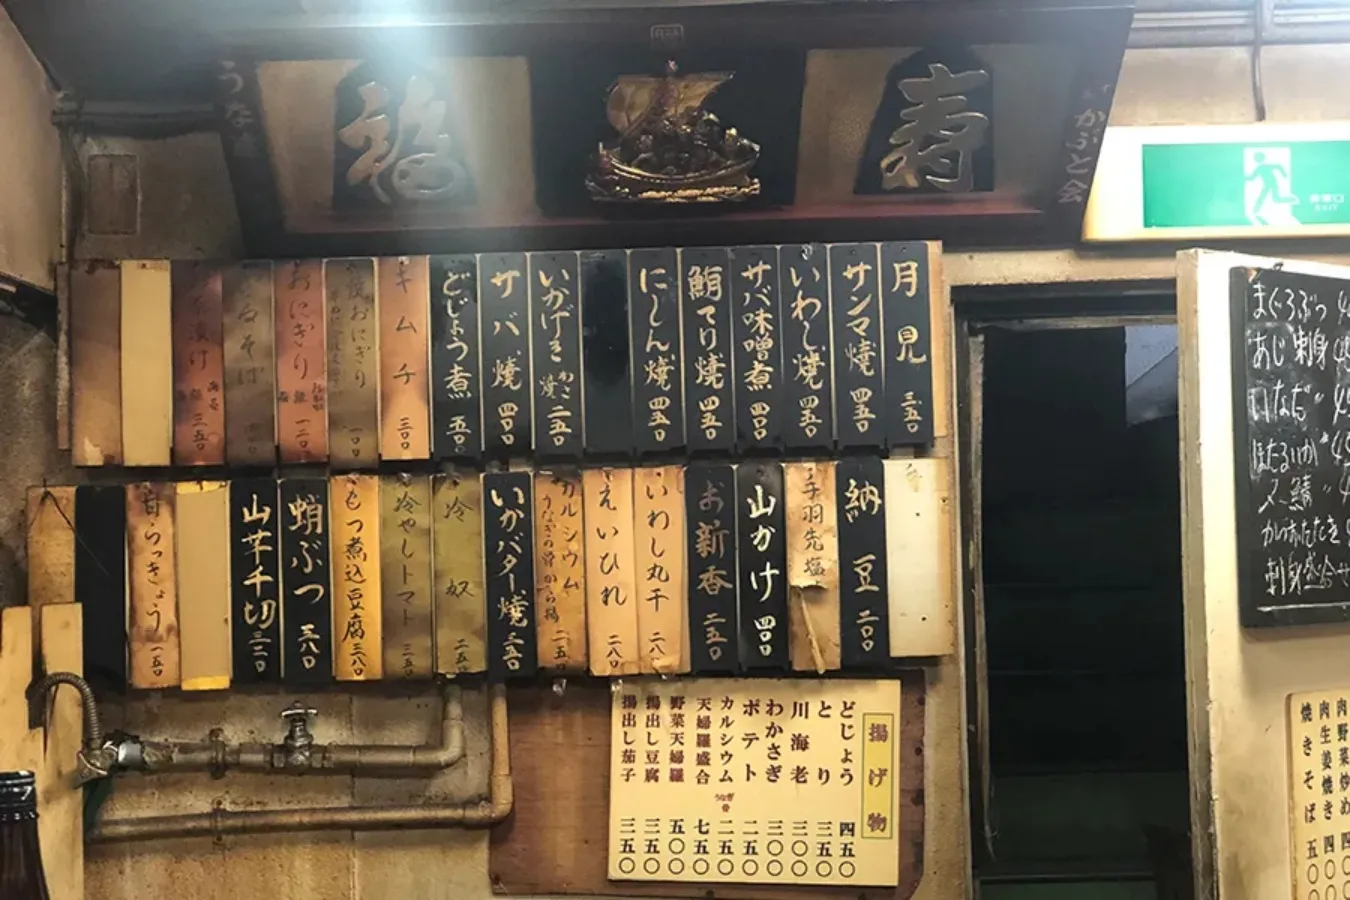 寿
福
かぶと会
うな
月見 三五〇
サンマ焼 四五〇
いわし焼 四五〇
サバ味噌煮 四〇〇
鮪てり焼 四五〇
にしん焼 四五〇
いかげそ焼 二五〇
サバ焼 四〇〇
どじょう煮 五五〇
キムチ 三〇〇
焼おにぎり
おにぎり
納豆 二〇〇
手羽先塩
山かけ 四〇〇
お新香 二五〇
いわし丸干 二八〇
えいひれ 二八〇
カルシウム うなぎの骨から揚 二五〇
いかバター焼 三五〇
冷奴 二五〇
冷やしトマト 三五〇
もつ煮込豆腐 三八〇
蛸ぶつ 三八〇
山芋千切 三二〇
甘らっきょう 一五〇
揚げ物
どじょう 四五〇
とり 三五〇
川海老 三〇〇
わかさぎ 三〇〇
ポテト 二五〇
カルシウム うなぎ骨 二五〇
天婦羅盛合 七五〇
野菜天婦羅 五〇〇
揚出し豆腐 三五〇
揚出し茄子 三五〇
非常口
EXIT
まぐろぶつ
あじ刺身
いなだ〃
ほたるいか〃
〆鯖〃
かつおたたき
刺身盛合せ
肉野菜炒め
肉生姜焼き 四〇〇
焼きそば 五〇〇